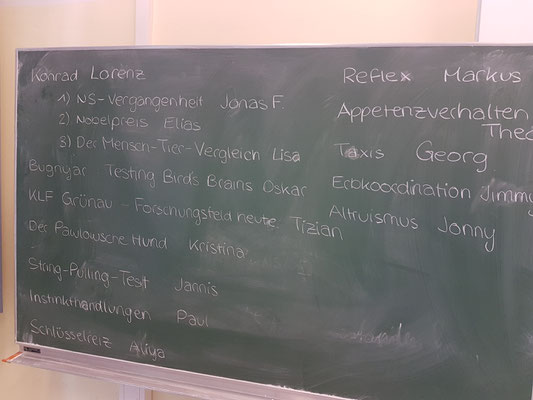 Konrad Lorenz
1) NS-Vergangenheit Jonas F.
2) Nobelpreis Elias
3) Der Mensch-Tier-Vergleich Lisa
Bugnyar Testing Birds Brains Oskar
KLF Grünau - Forschungsfeld heute Tizian
Der Pawlowsche Hund Kristina
String-Pulling-Test Jannis
Instinkthandlungen Paul
Schlüsselreiz Aliya
Reflex Markus
Appetenzverhalten
Theo
Taxis Georg
Erbkoordination Jimmy
Altruismus Jonny